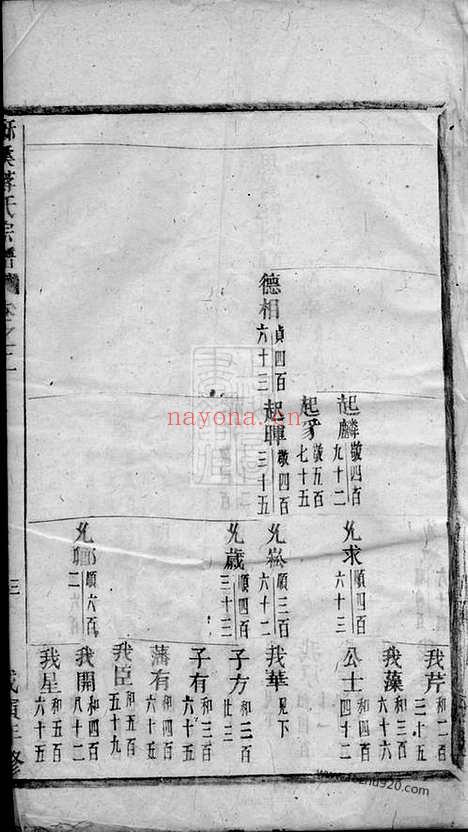 德相 貞四百六十三
起麟 敬四百九十二
起豸 敬五百七十五
起暉 敬四百三十五
允求 順四百六十三
允崧 順三百六十二
允歲 順四百三十三
允 順六百 二
我芹 和二百三十五
我藻 和三百六十六
公士 和四百四十二
我華 見下
子方 和三百廿三
子有 和三百六十五
藩有 和四百六十五
我臣 和五百五十九
我開 和四百八十二
我星 和五百六十五
氏宗譜
三
三修
nayona.cn